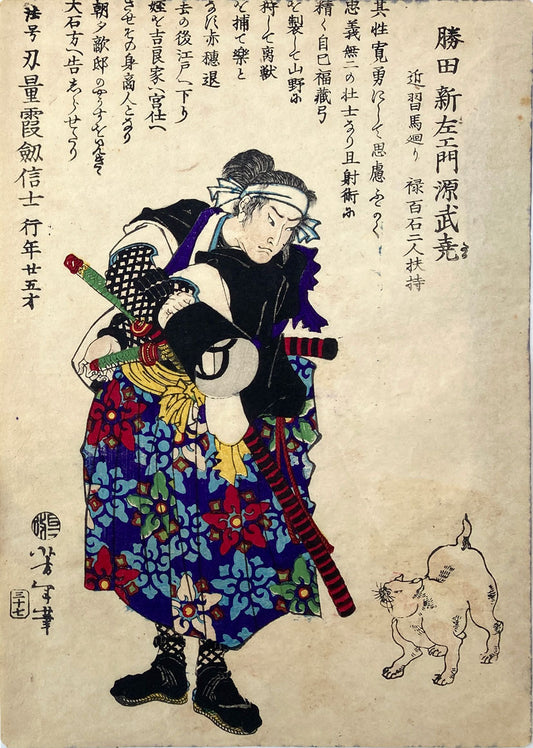 勝田新左エ門源武尭
近習馬廻り 禄百石二人扶持
其性寛勇にして思慮ふかく
忠義無二の壮士なり且射術に
精く自己福蔵弓
を製して山野に
狩して禽獣
を捕て楽と
なす赤穂退
去の後江戸へ下り
姪を吉良家へ宮仕へ
させその身商人となり
朝夕敵邸のやうすをうかゞひ
大石方へ告しらせたり
法号刃量霞劔信士 行年廿五才
芳年筆
三十七